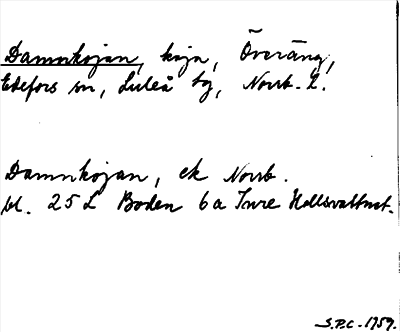 Dammkojan, koja, Överäng,
Edefors sn, Luleå tg, Norrb. L.
Dammkojan, ek Norrb.
bl. 25 L Boden 6 a Inre Hällsvattnet.
S.P.C. - 1959.